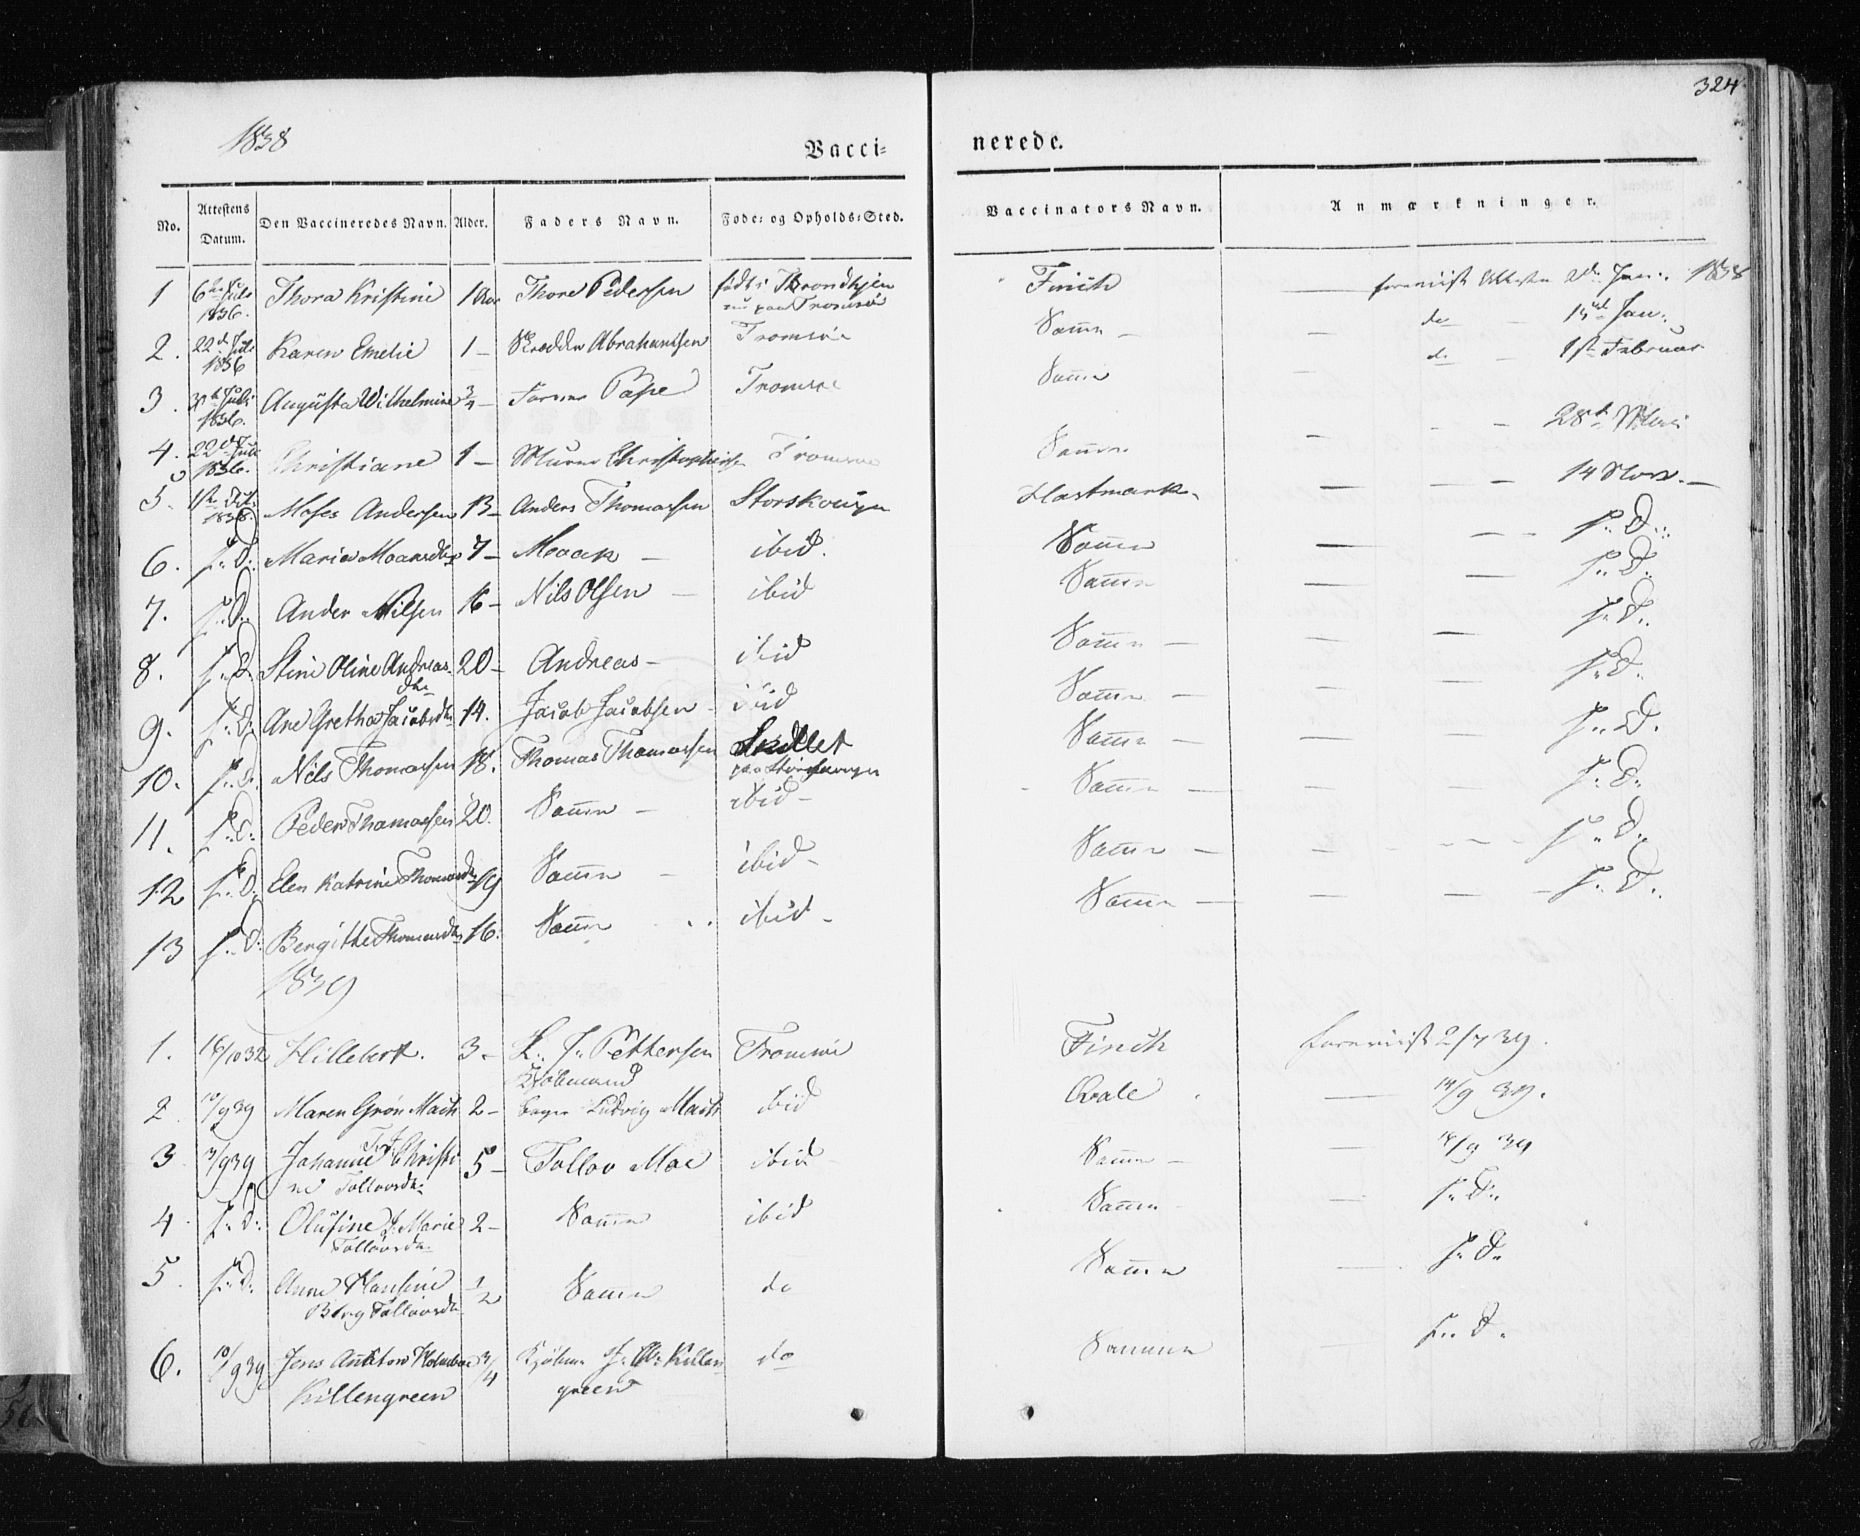 324
1838
Vacci= nerede.
No. Attestens Datum. Den Vaccineredes Navn. Alder. Faders Navn. Føde- og Opholds-Sted. Vaccinators Navn. Anmærkninger.
1 6te Juli 1836. Thora Kristine 1 Aar Thore Pedersen født i Trondhjem nu paa Tromsøe Finch — foreviist Attesten 2de Jan: 1838
2. 22d Juli 1836 Karen Emelie 1 — Skrædder Abrahamsen Tromsøe Samme — do 15de Jan:
3. Juli 1836. Augusta Wilhelmine 3/4 — Pape Tromsøe Samme — do — 1ste Februar
4. 22d Juli 1836. Christiane 1 — Murer Christophersen Tromsøe Samme — 28de
5. 1ste 1838. Moses Andersen 13 — Anders Thomassen Storskougen Hastmark — 14 Novr. —
6. s. D: Maria Moansdtr 7 — Moaek — ibid. Samme — s. D.
7. s. D. Ander Nilsen 16 — Nils Olsen — ibid Samme — s. D.
8. s. D. Stine Oline Andreas dtr 20 — Andreas — ibid Samme — s. D.
9. s. D. Ane Grethe Jacobsdtr 14. Jacob Jacobsen — ibid Samme — s. D.
10. s. D. Nils Thomassen 18. Thomas Thomassen Samme — s. D.
11. s. D: Peder Thomassen 20. Samme — ibid — Samme — s. D:
12 s. D. Elen Katrine Thomasdtr 19 Samme — ibid — Samme — s. D.
13 s. D: Bergithe Thomasdtr 16. Samme ibid — Samme — s. D.
1839
1. 16/10 32 Hillebert. 3 — L. J. Pettersen Kjøbmand Tromsøe Finch foreviist 2/7 39.
2 10/9 39 Maren Grøn Mack 2 — Bager Ludvig Mack ibid — 14/9 39.
3 7/9 39 Johanne Christine Tollovsdtr: 5 — Tollov Moe ibid Samme — 14/9 39
4 s. D. Olufine J. Marie Tollovsdtr. 2 — Samme ibid Samme — s. D.
5. s. D. Anne Hansine Berg Tollovsdtr 1/2 Samme do Samme — s. D.
6. 10/9 39 Jens Anton Holmboe Killengreen 3/4 Kjøbm. Killengreen do Samme — s. D.